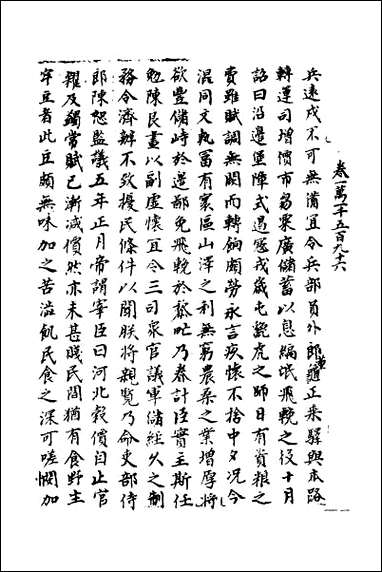 卷一萬一千五百九十六
兵遠戍不可無備宜令兵部員外郎董龜正乘驛與本路
轉運司增價市芻粟廣儲蓄以息編氓飛輓之役十月
詔曰沿邊堡障式遏蠻戎歲屯貔虎之師日有資粮之
費雖賦調無闕而轉餉頗勞永言疚懷不捨中夕况今
混同文軌富有寰區山澤之利無窮農桑之業增厚將
欲豐儲峙於邊鄙免飛輓於黎甿乃眷計臣實主斯任
勉陳良畫以副虚懷宜令三司衆官議軍儲經久之制
務令濟辦不致擾民條件以聞朕將親覽乃命吏部侍
郎陳恕監議五年正月帝謂宰臣曰河北穀價自止官
糴及蠲常賦已漸减價然亦未甚賤民間猶有食野生
牢豆者此豆頗無味加之苦澁飢民食之深可嗟憫加